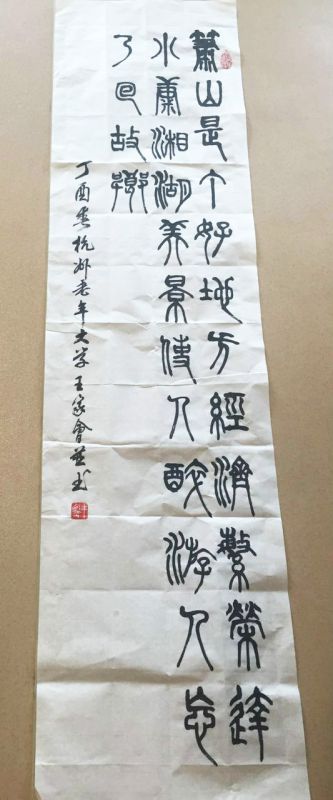 蕭山是个好地方經濟繁榮達
小康湘湖美景使人醉游人忘
了回故鄉
丁酉杭州老年大学王家會並书